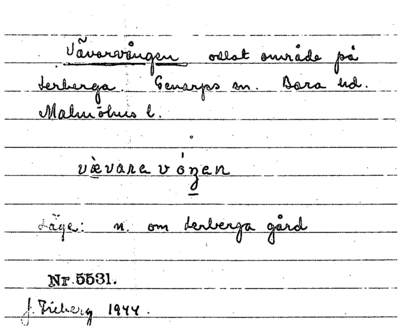 Vävarevången oslat område på
Lerberga. Genarps sn. Bara hd.
Malmöhus l.
vävara vóŋen
Läge: n. om Lerberga gård
Nr. 5531.
1944.